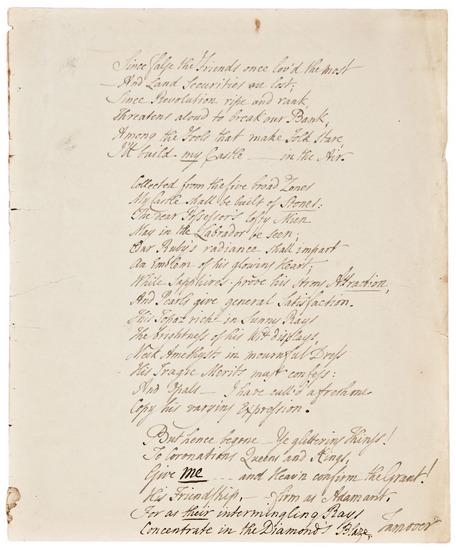 Since false the Friends once lov'd the most
And Land Securities are lost,
Since Revolution ripe and rank
Threatens aloud to break our Bank,
Among the Fools that make Fold Stare,
I'll build my Castle — in the Air.
Collected from the five broad Zones
My Castle shall be built of Stones:
The dear Possessor's lofty Mien
May in the Labrador be seen;
Our Ruby's radiance shall impart
An Emblem of his glowing Heart;
While Sapphires prove his Arms Attraction,
And Pearls give general Satisfaction.
His Topaz richt in Sunny Rays
The brightness of his Wit displays,
Next Amethyst in mournful Dress
His Tragic Merits must confess:
And Opals — I have cull'd afresh one
Copy his varying Expression.
But hence begone — Ye glittering Things!
To Coronations Queens and Kings,
Give me — and Heav'n confirm the Grant!
His Friendship, — firm as Adamant,
For as their intermingling Rays
Concentrate in the Diamond's Blaze